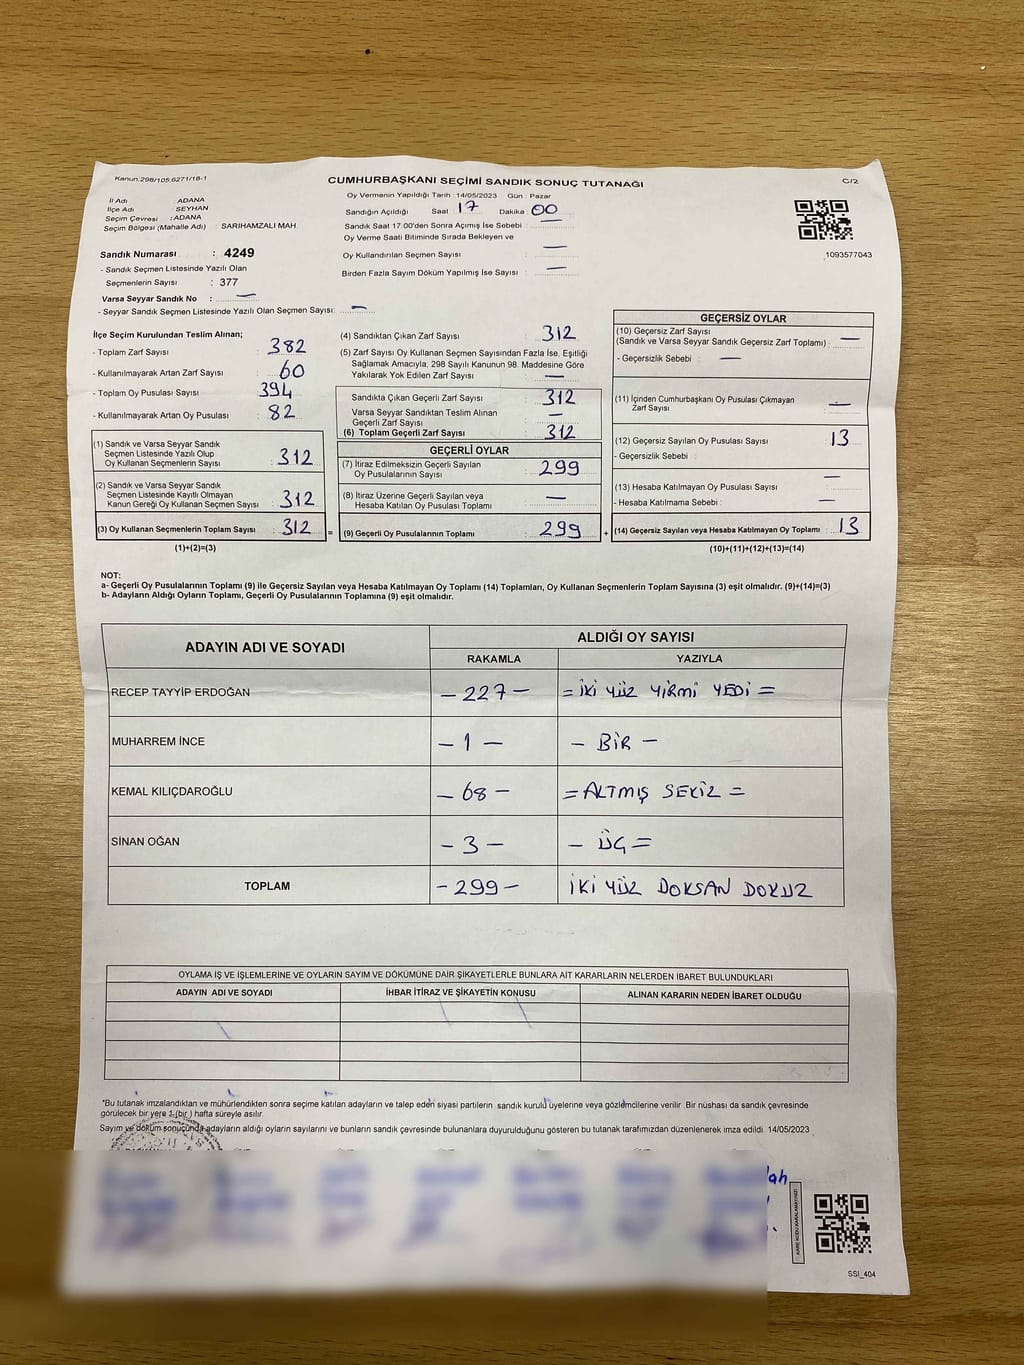 Kanun:298/105,6271/18-1
CUMHURBAŞKANI SEÇİMİ SANDIK SONUÇ TUTANAĞI
C/2
İl Adı ADANA
İlçe Adı SEYHAN
Seçim Çevresi : ADANA
Seçim Bölgesi (Mahalle Adı) : SARIHAMZALI MAH
Oy Vermenin Yapıldığı Tarih :14/05/2023 Gün : Pazar
Sandığın Açıldığı Saat 17 Dakika : 00
Sandık Saat 17:00'den Sonra Açımış İse Sebebi :
Oy Verme Saati Bitiminde Sırada Bekleyen ve
Oy Kullandırılan Seçmen Sayısı : —
Birden Fazla Sayım Döküm Yapılmış İse Sayısı : —
1093577043
Sandık Numarası : 4249
- Sandık Seçmen Listesinde Yazılı Olan
Seçmenlerin Sayısı : 377
Varsa Seyyar Sandık No : —
- Seyyar Sandık Seçmen Listesinde Yazılı Olan Seçmen Sayısı: —
İlçe Seçim Kurulundan Teslim Alınan;
- Toplam Zarf Sayısı : 382
- Kullanılmayarak Artan Zarf Sayısı : 60
- Toplam Oy Pusulası Sayısı : 394
- Kullanılmayarak Artan Oy Pusulası : 82
(1) Sandık ve Varsa Seyyar Sandık
Seçmen Listesinde Yazılı Olup
Oy Kullanan Seçmenlerin Sayısı : 312
(2) Sandık ve Varsa Seyyar Sandık
Seçmen Listesinde Kayıtlı Olmayan
Kanun Gereği Oy Kullanan Seçmen Sayısı : 312
(3) Oy Kullanan Seçmenlerin Toplam Sayısı : 312
(1)+(2)=(3)
(4) Sandıktan Çıkan Zarf Sayısı : 312
(5) Zarf Sayısı Oy Kullanan Seçmen Sayısından Fazla İse, Eşitliği
Sağlamak Amacıyla; 298 Sayılı Kanunun 98. Maddesine Göre
Yakılarak Yok Edilen Zarf Sayısı : —
Sandıkta Çıkan Geçerli Zarf Sayısı : 312
Varsa Seyyar Sandıktan Teslim Alınan
Geçerli Zarf Sayısı : —
(6) Toplam Geçerli Zarf Sayısı : 312
GEÇERLİ OYLAR
(7) İtiraz Edilmeksizin Geçerli Sayılan
Oy Pusulalarının Sayısı : 299
(8) İtiraz Üzerine Geçerli Sayılan veya
Hesaba Katılan Oy Pusulası Toplamı : —
= (9) Geçerli Oy Pusulalarının Toplamı : 299
GEÇERSİZ OYLAR
(10) Geçersiz Zarf Sayısı
(Sandık ve Varsa Seyyar Sandık Geçersiz Zarf Toplamı) : —
- Geçersizlik Sebebi : —
(11) İçinden Cumhurbaşkanı Oy Pusulası Çıkmayan
Zarf Sayısı : —
(12) Geçersiz Sayılan Oy Pusulası Sayısı : 13
- Geçersizlik Sebebi :
(13) Hesaba Katılmayan Oy Pusulası Sayısı : —
- Hesaba Katılmama Sebebi : —
+ (14) Geçersiz Sayılan veya Hesaba Katılmayan Oy Toplamı : 13
(10)+(11)+(12)+(13)=(14)
NOT:
a- Geçerli Oy Pusulalarının Toplamı (9) ile Geçersiz Sayılan veya Hesaba Katılmayan Oy Toplamı (14) Toplamları, Oy Kullanan Seçmenlerin Toplam Sayısına (3) eşit olmalıdır. (9)+(14)=(3)
b- Adayların Aldığı Oyların Toplamı, Geçerli Oy Pusulalarının Toplamına (9) eşit olmalıdır.
ADAYIN ADI VE SOYADI ALDIĞI OY SAYISI
RAKAMLA YAZIYLA
RECEP TAYYİP ERDOĞAN — 227 — = İKİ YÜZ YİRMİ YEDİ =
MUHARREM İNCE — 1 — — BİR —
KEMAL KILIÇDAROĞLU — 68 — = ALTMIŞ SEKİZ =
SİNAN OĞAN — 3 — — ÜÇ =
TOPLAM — 299 — İKİ YÜZ DOKSAN DOKUZ
OYLAMA İŞ VE İŞLEMLERİNE VE OYLARIN SAYIM VE DÖKÜMÜNE DAİR ŞİKAYETLERLE BUNLARA AİT KARARLARIN NELERDEN İBARET BULUNDUKLARI
ADAYIN ADI VE SOYADI İHBAR İTİRAZ VE ŞİKAYETİN KONUSU ALINAN KARARIN NEDEN İBARET OLDUĞU
*Bu tutanak imzalandıktan ve mühürlendikten sonra seçime katılan adayların ve talep eden siyasi partilerin sandık kurulu üyelerine veya gözlemcilerine verilir. Bir nüshası da sandık çevresinde
görülecek bir yere 1 (bir ) hafta süreyle asılır.
Sayım ve döküm sonucunda adayların aldığı oyların sayılarını ve bunların sandık çevresinde bulunanlara duyurulduğunu gösteren bu tutanak tarafımızdan düzenlenerek imza edildi. 14/05/2023
SSI_404